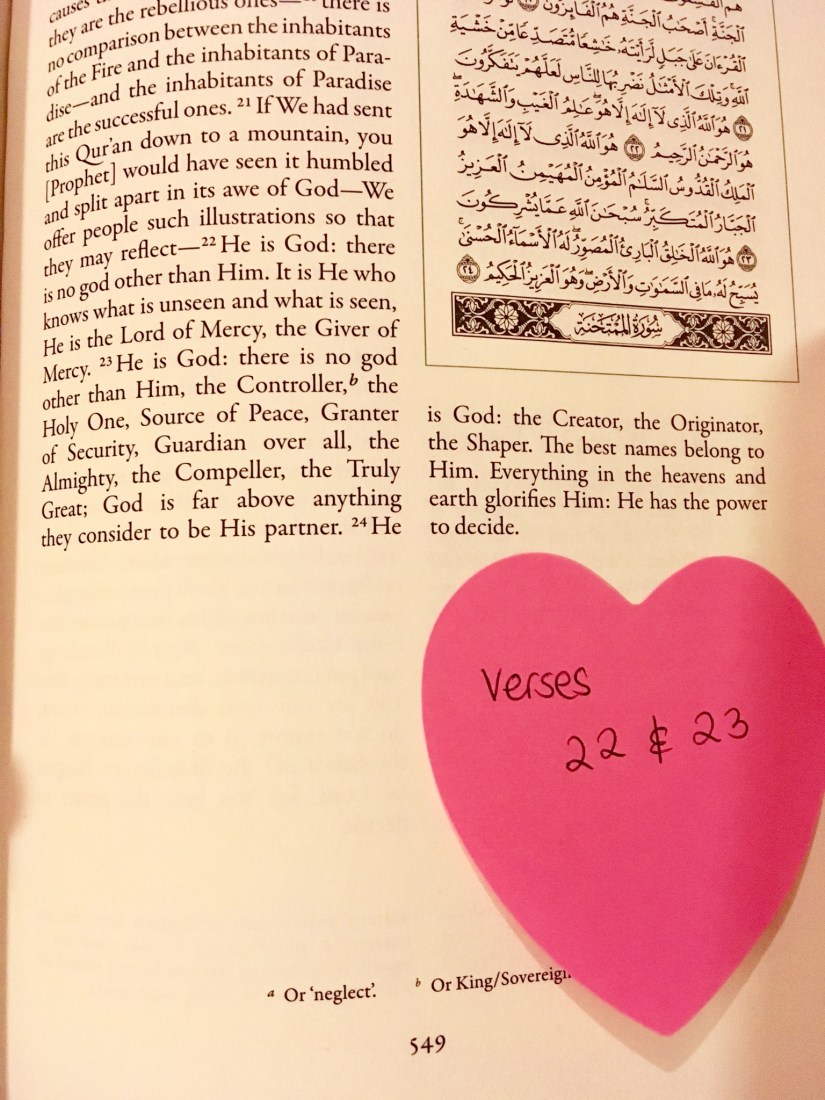 causes
they are the rebellious ones— there is
no comparison between the inhabitants
of the Fire and the inhabitants of Para-
dise—and the inhabitants of Paradise
are the successful ones. 21 If We had sent
this Qur'an down to a mountain, you
[Prophet] would have seen it humbled
and split apart in its awe of God—We
offer people such illustrations so that
they may reflect—22 He is God: there
is no god other than Him. It is He who
knows what is unseen and what is seen,
He is the Lord of Mercy, the Giver of
Mercy. 23 He is God: there is no god
other than Him, the Controller,b the
Holy One, Source of Peace, Granter
of Security, Guardian over all, the
Almighty, the Compeller, the Truly
Great; God is far above anything
they consider to be His partner. 24 He
ٱلۡجَنَّةِۚ أَصۡحَٰبُ ٱلۡجَنَّةِ هُمُ ٱلۡفَآئِزُونَ ٢٠ لَوۡ
ٱلۡقُرۡءَانَ عَلَىٰ جَبَلٖ لَّرَأَيۡتَهُۥ خَٰشِعٗا مُّتَصَدِّعٗا مِّنۡ خَشۡيَةِ
ٱللَّهِۚ وَتِلۡكَ ٱلۡأَمۡثَٰلُ نَضۡرِبُهَا لِلنَّاسِ لَعَلَّهُمۡ يَتَفَكَّرُونَ
٢١ هُوَ ٱللَّهُ ٱلَّذِي لَآ إِلَٰهَ إِلَّا هُوَۖ عَٰلِمُ ٱلۡغَيۡبِ وَٱلشَّهَٰدَةِۖ
هُوَ ٱلرَّحۡمَٰنُ ٱلرَّحِيمُ ٢٢ هُوَ ٱللَّهُ ٱلَّذِي لَآ إِلَٰهَ إِلَّا هُوَ
ٱلۡمَلِكُ ٱلۡقُدُّوسُ ٱلسَّلَٰمُ ٱلۡمُؤۡمِنُ ٱلۡمُهَيۡمِنُ ٱلۡعَزِيزُ
ٱلۡجَبَّارُ ٱلۡمُتَكَبِّرُۚ سُبۡحَٰنَ ٱللَّهِ عَمَّا يُشۡرِكُونَ
٢٣ هُوَ ٱللَّهُ ٱلۡخَٰلِقُ ٱلۡبَارِئُ ٱلۡمُصَوِّرُۖ لَهُ ٱلۡأَسۡمَآءُ ٱلۡحُسۡنَىٰۚ
يُسَبِّحُ لَهُۥ مَا فِي ٱلسَّمَٰوَٰتِ وَٱلۡأَرۡضِۖ وَهُوَ ٱلۡعَزِيزُ ٱلۡحَكِيمُ ٢٤
سُورَةُ المُمْتَحنَة
is God: the Creator, the Originator,
the Shaper. The best names belong to
Him. Everything in the heavens and
earth glorifies Him: He has the power
to decide.
Verses
22 & 23
a Or 'neglect'. b Or King/Sovereign.
549